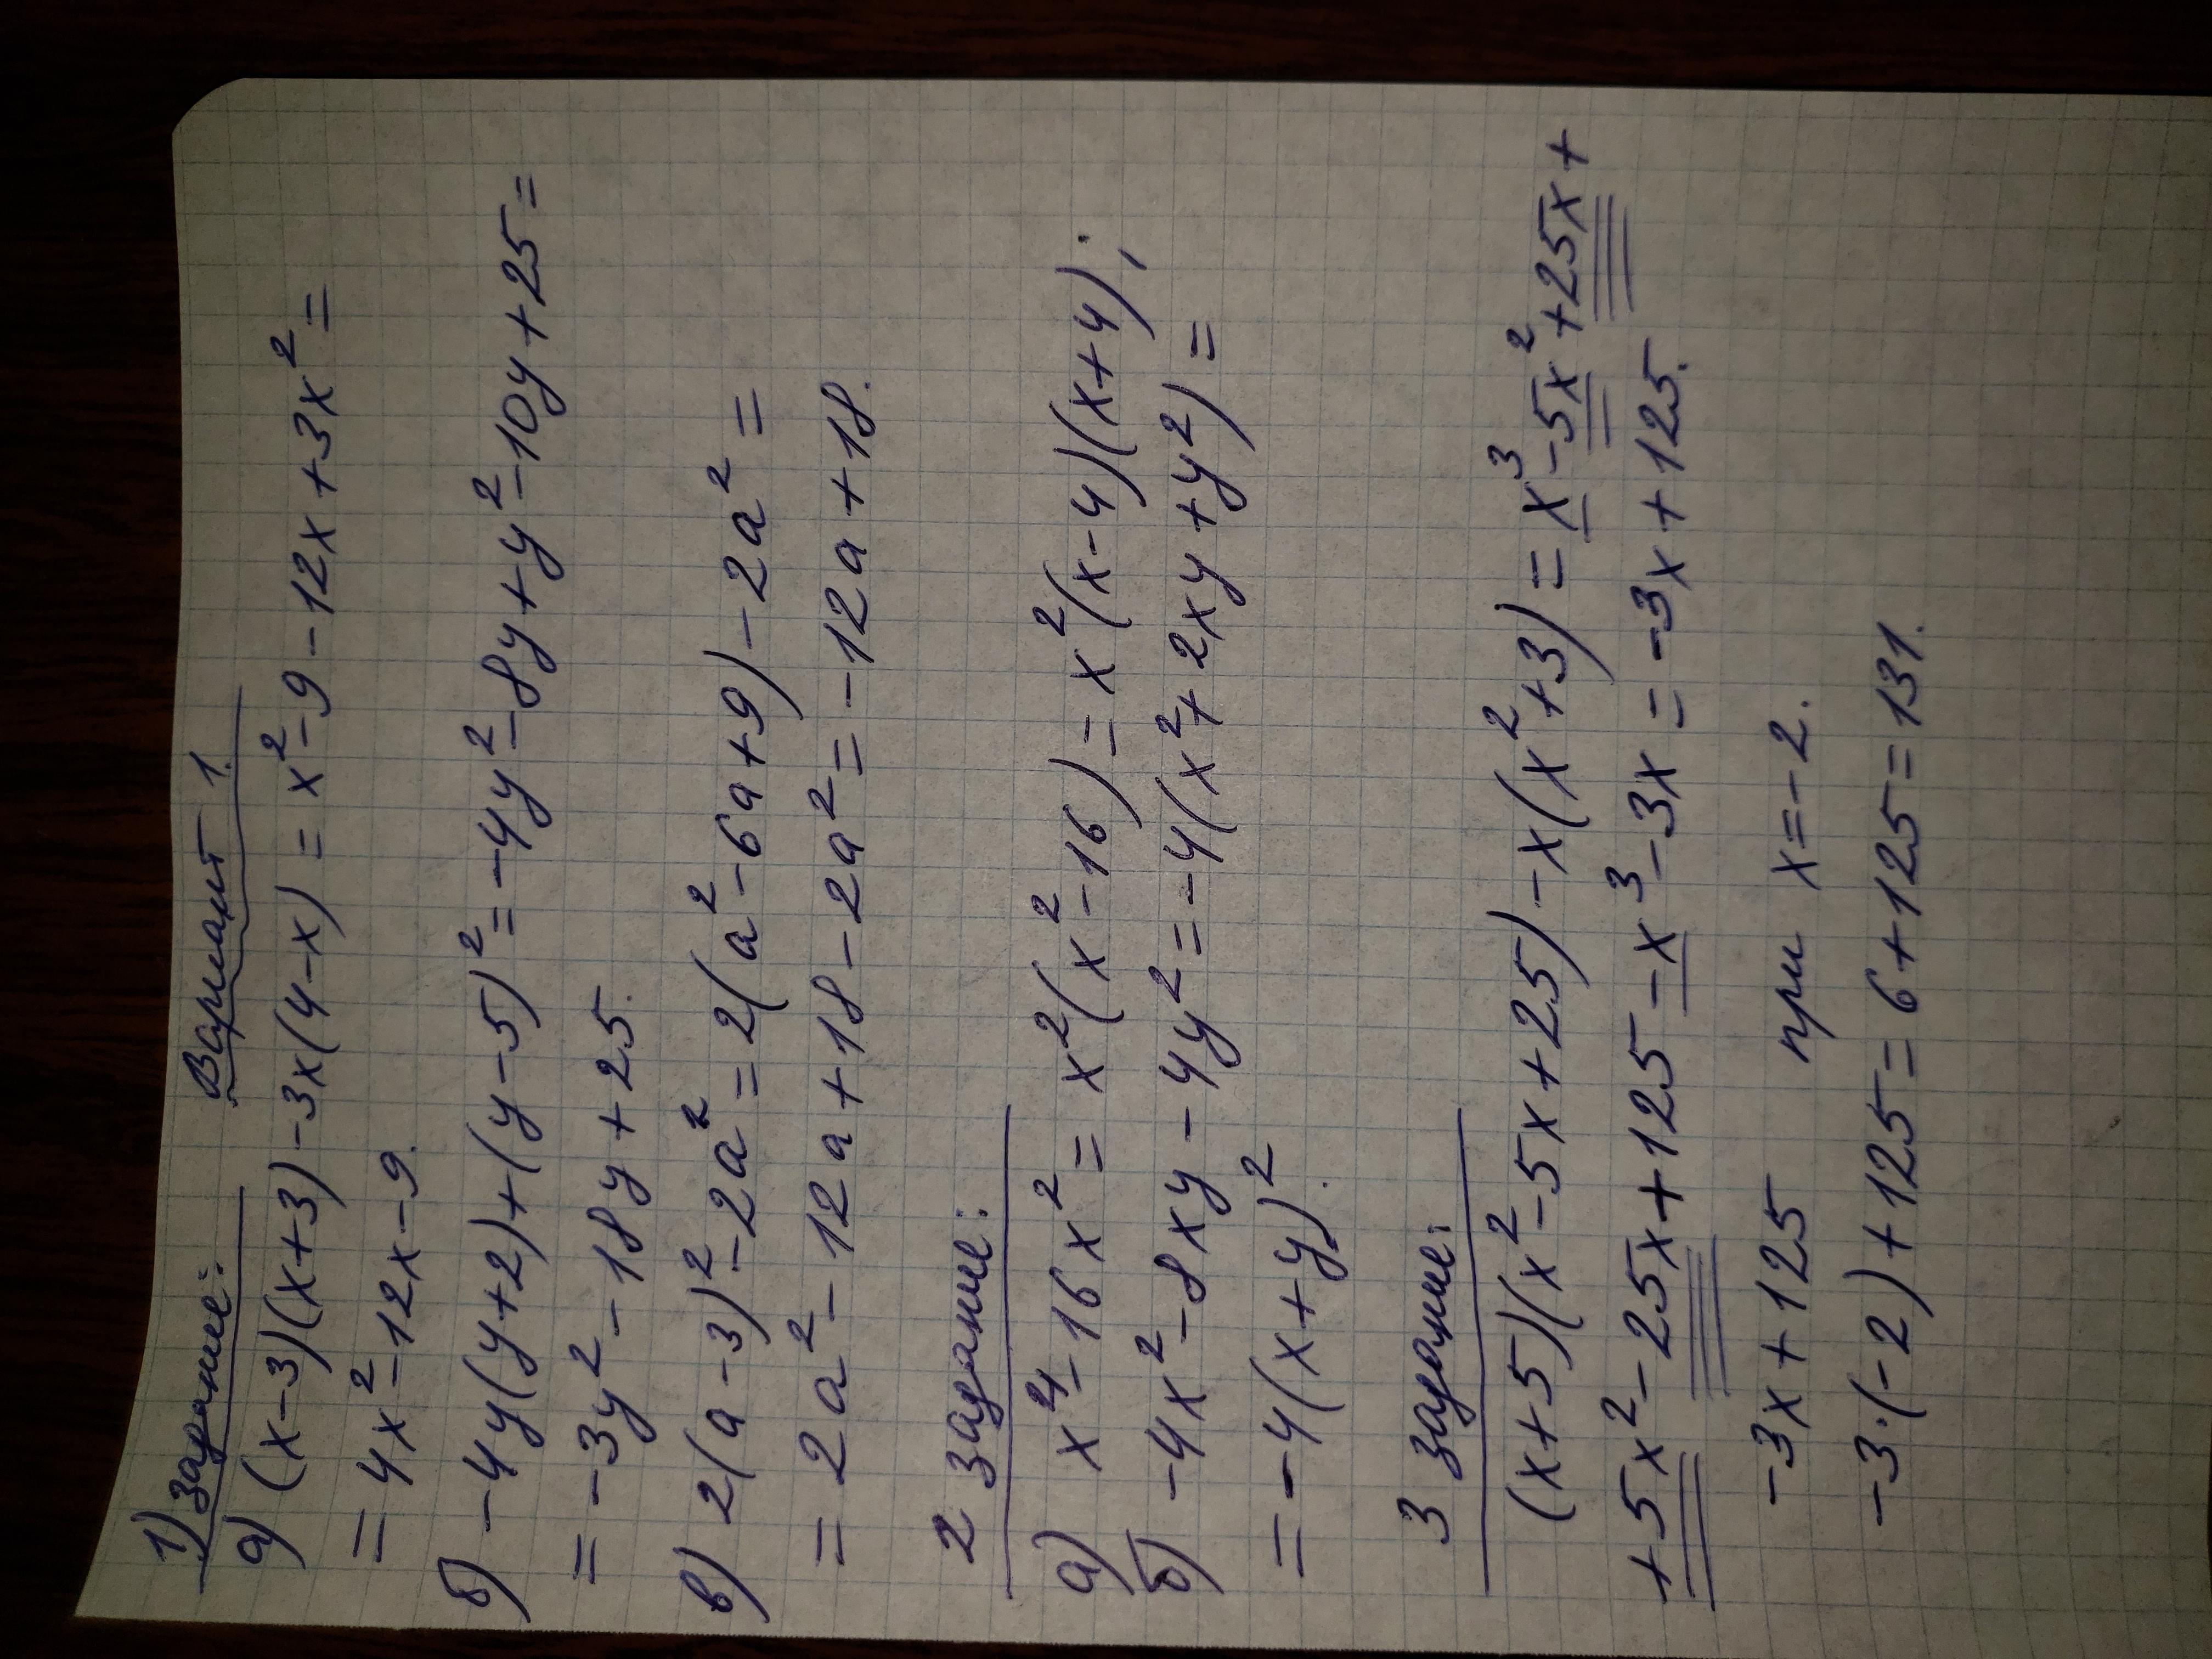 Вариант 1.
1) задание:
а) (x-3)(x+3)-3x(4-x) = x²-9-12x+3x² =
= 4x²-12x-9.
б) -4y(y+2)+(y-5)² = -4y²-8y+y²-10y+25 =
= -3y²-18y+25.
в) 2(a-3)²-2a² = 2(a²-6a+9)-2a² =
= 2a²-12a+18-2a² = -12a+18.
2 задание:
а) x⁴-16x² = x²(x²-16) = x²(x-4)(x+4);
б) -4x²-8xy-4y² = -4(x²+2xy+y²) =
= -4(x+y)².
3 задание:
(x+5)(x²-5x+25)-x(x²+3) = x³-5x²+25x+
+5x²-25x+125-x³-3x = -3x+125.
-3x+125 при x=-2.
-3·(-2)+125 = 6+125 = 131.